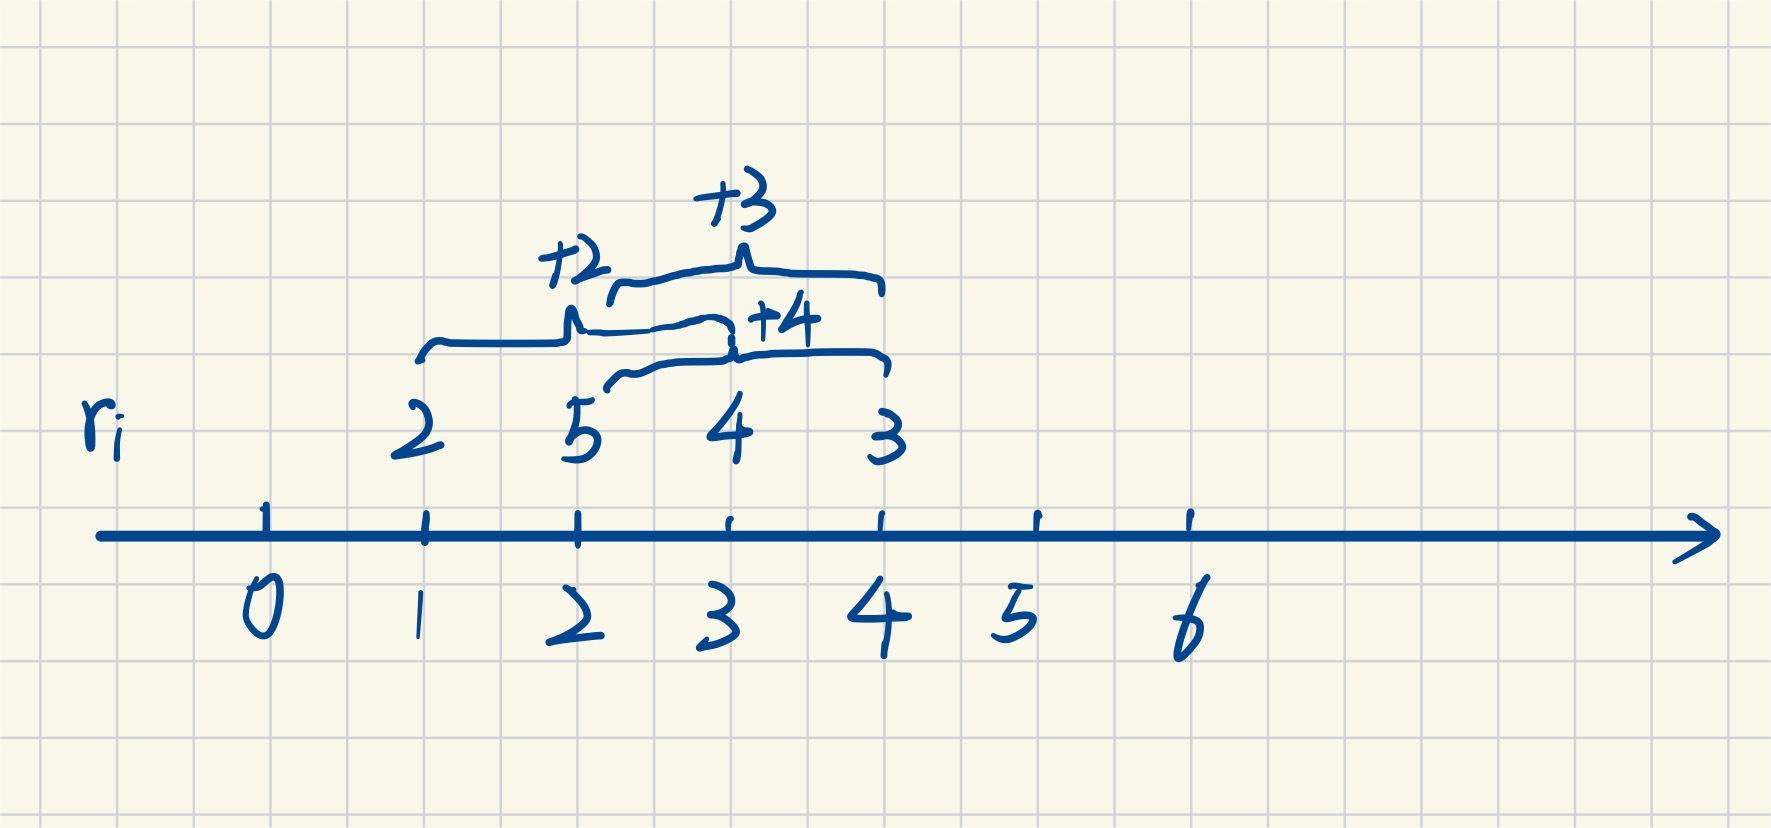 +3
+2
+4
ri 2 5 4 3
0 1 2 3 4 5 6